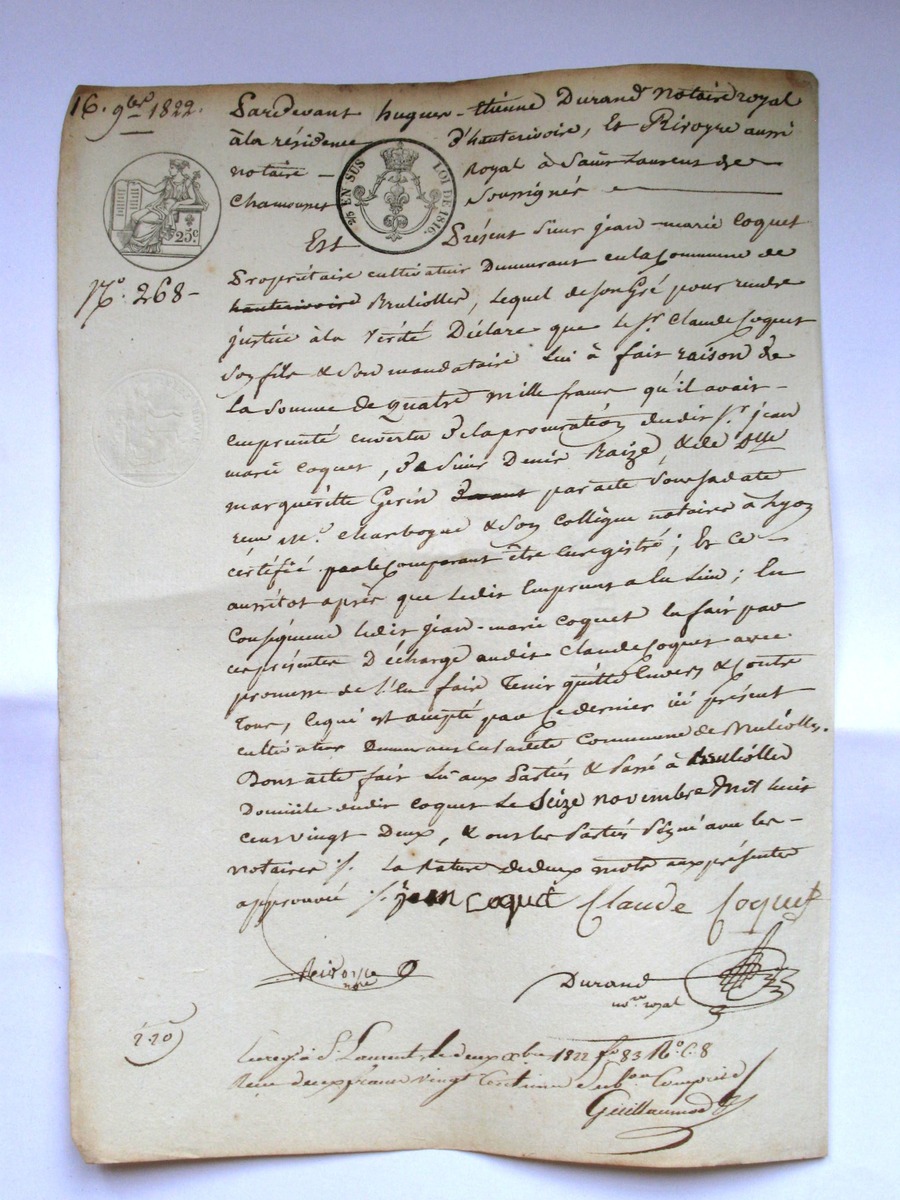 16. 9bre 1822.
Pardevant hugues-étienne Durand notaire royal
à la résidence d'hauterivoire, Et Rivoyre aussi
notaire Royal à Saint Laurent de
Chamousset Soussignés
25c
¼ EN SUS LOI DE 1816.
Est Présent Sieur jean-marie Coquet
No. 268
Propriétaire cultivateur Demeurant en la Commune de
hauterivoire Brulliolles, Lequel de Son Gré pour rendre
justice à la Vérité Déclare que le Sr. Claude Coquet
Son fils & Son mandataire lui à fait raison de
La Somme de quatre mille francs qu'il avait
emprunté en vertu de la procuration dudit Sr. jean
marie Coquet, de Sieur Denis Raize, & de Dlle
marguéritte Gerin par acte Sous Sa date
reçu Me. Charbogne & Son Collègue notaires à Lyon
certifié par le Comparant être Enregistré; Et Ce
aussitot après que Ledit Emprunt a Eu Lieu; En
Conséquence Ledit jean-marie Coquet En fait par
ces présentes Décharge audit Claude Coquet avec
promesse de l'En faire Tenir quitte Envers & Contre
Tous, Ce qui est accepté par Ce dernier ici présent
cultivateur Demeurant En Ladite Commune de Brulliolles.
Dont acte fait Lu aux Parties & Passé à Brulliolles
Domicile dudit Coquet Le Seize novembre Mil huit
Cent vingt Deux, & ont les Parties Signé avec les
notaires /. La Rature de deux mots aux présentes
approuvée /. jean coquet Claude Coquet
Rivoyre nore
Durand
nore royal
2.20
Enregé à St. Laurent, le deux Xbre 1822 fo 83 Ro. C. 8
Reçu deux francs vingt Centimes Subon Comprise
Guillaumod